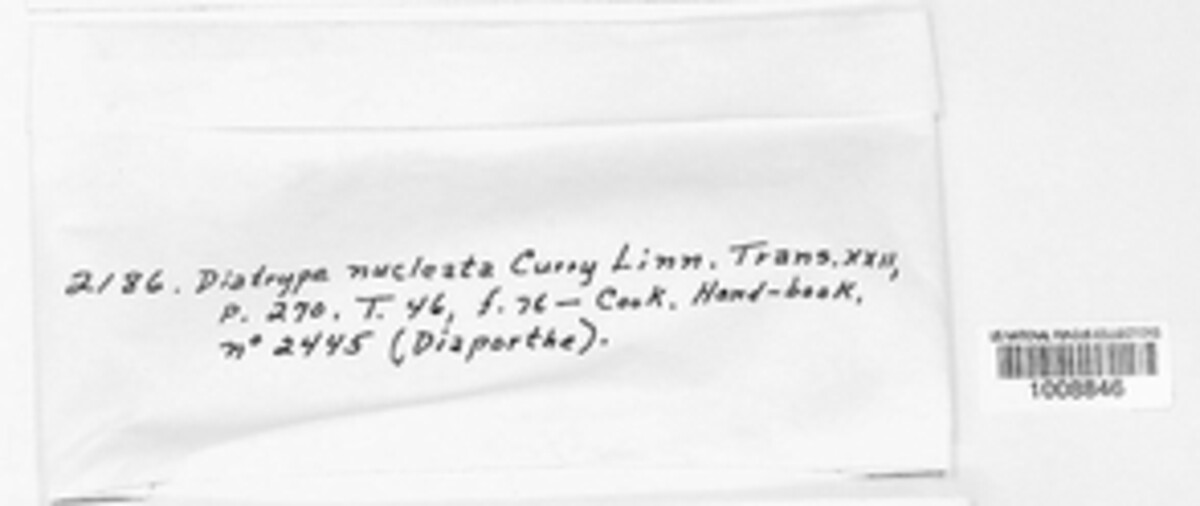 2186. Diatrype nucleata Curry Linn. Trans. XXII,
p. 270. T. 46, f. 76 — Cook. Hand-book,
n° 2445 (Diaporthe).
US NATIONAL FUNGUS COLLECTIONS
1008846